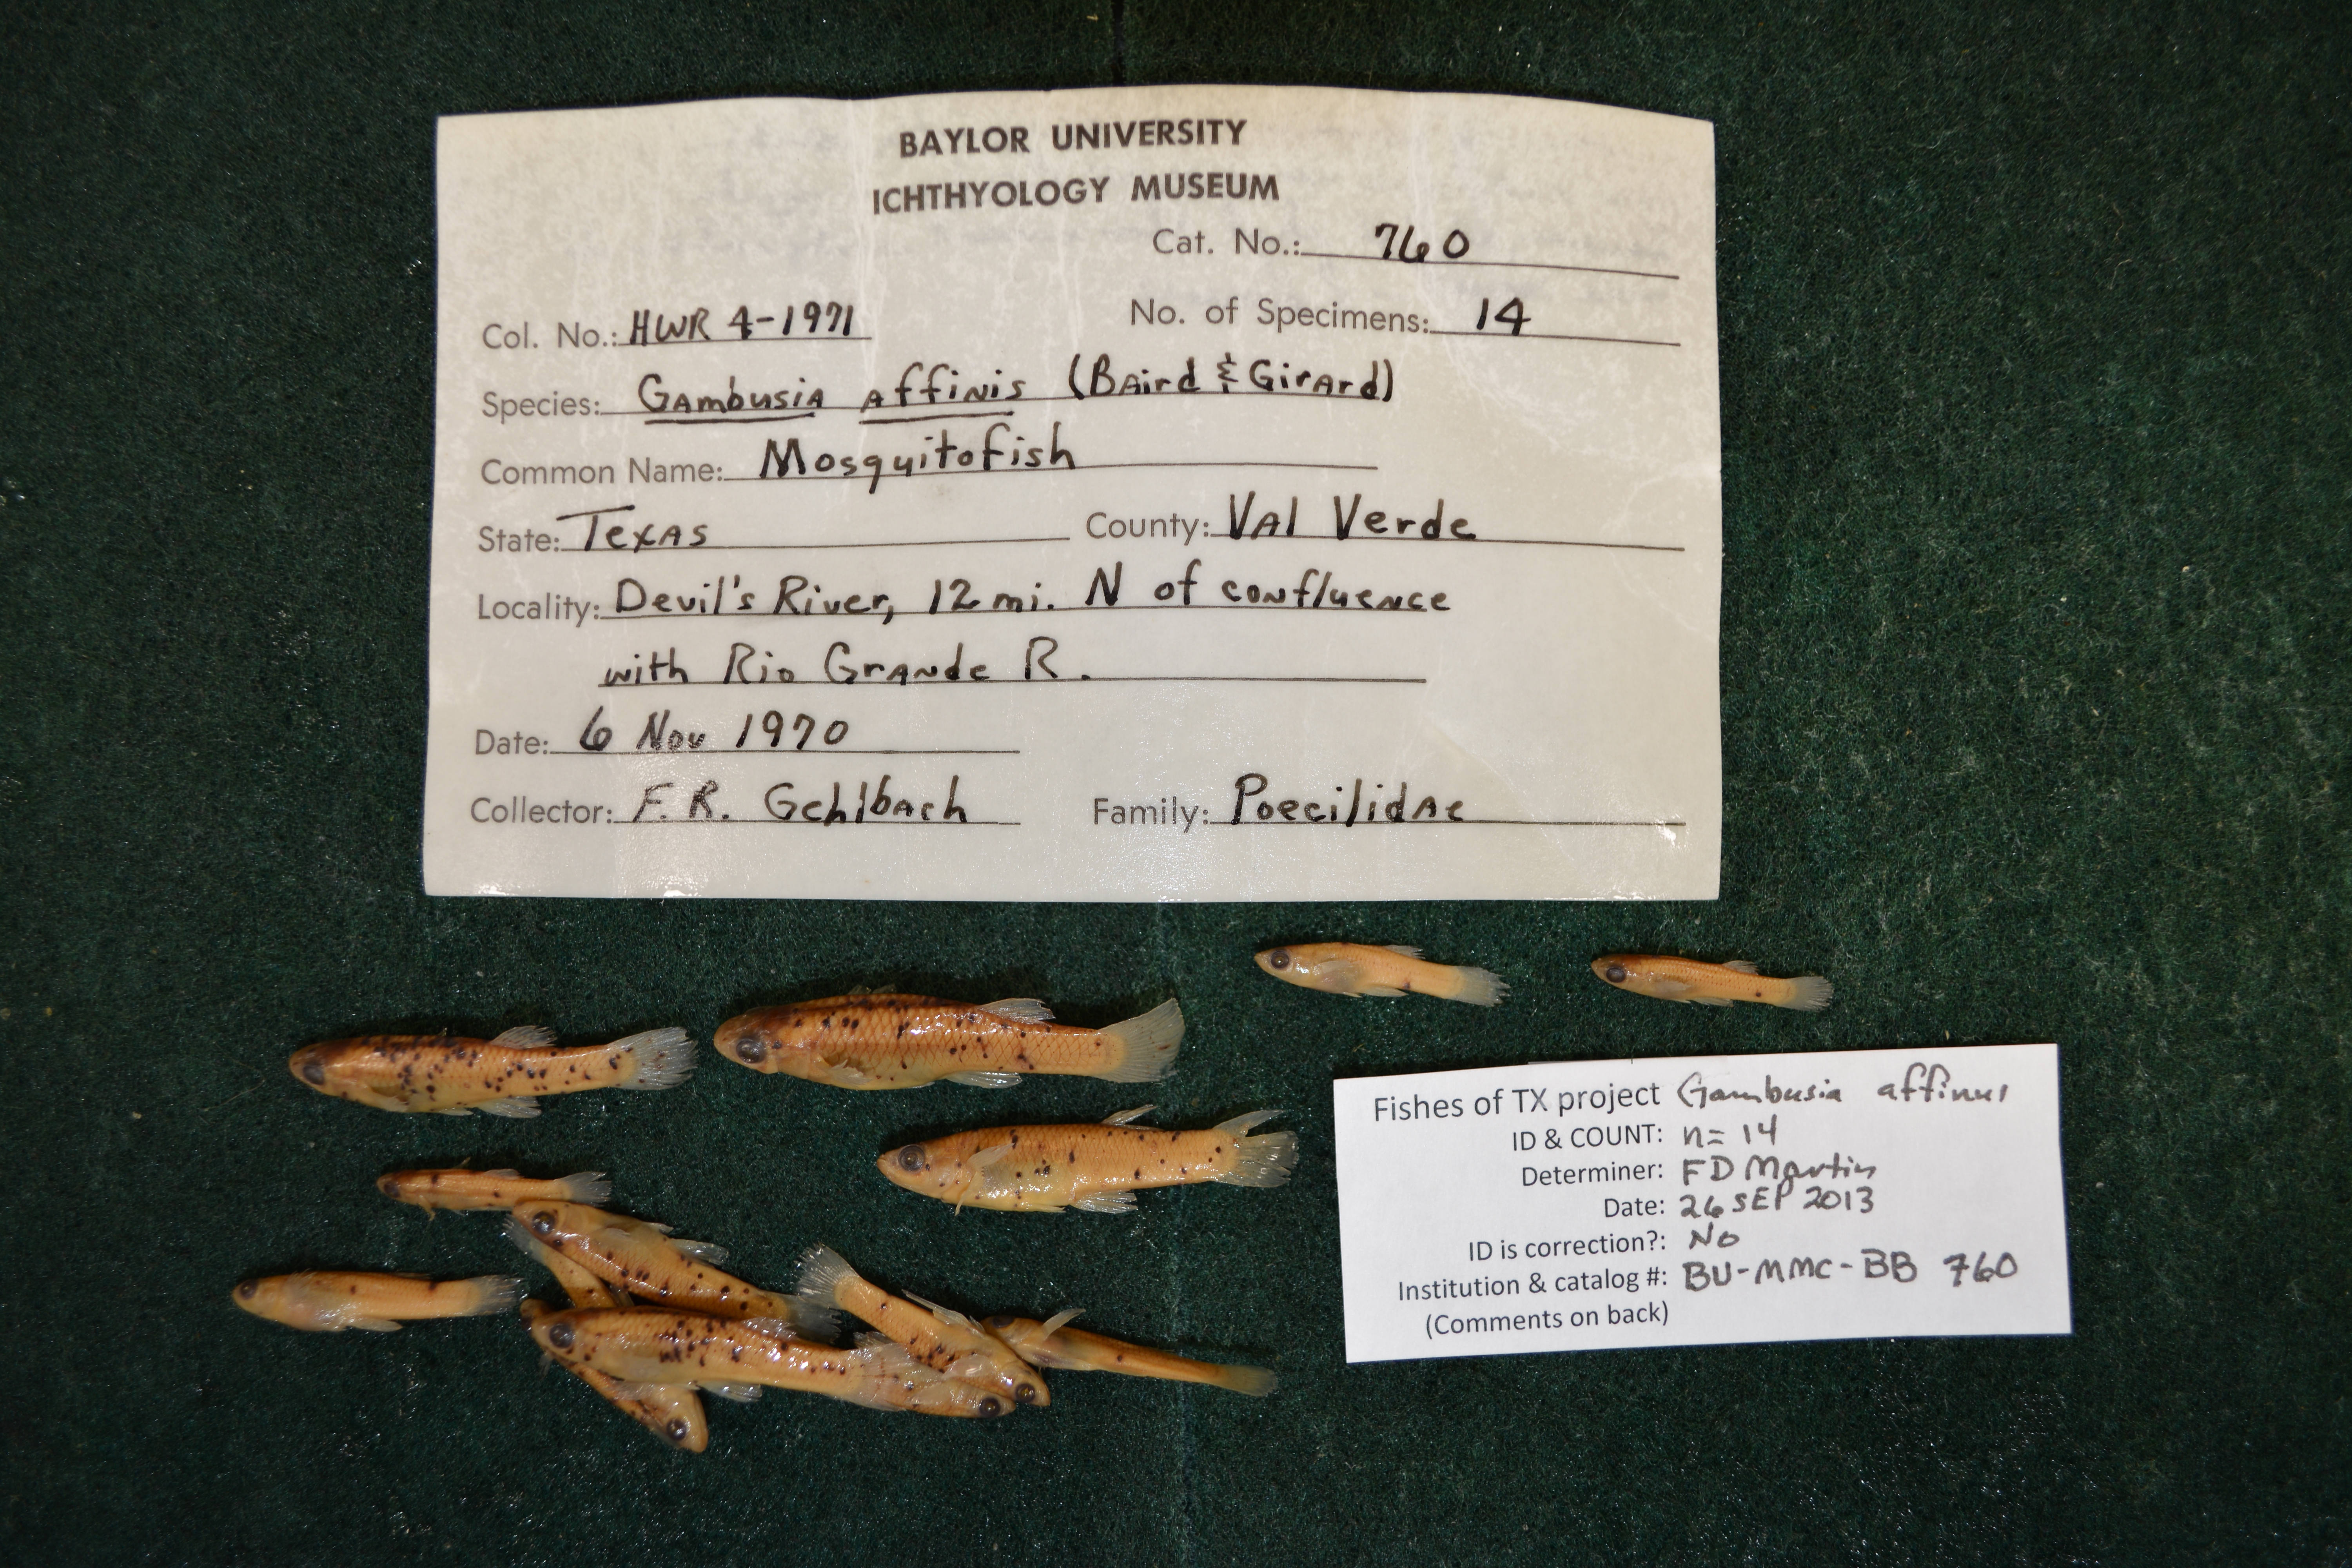 BAYLOR UNIVERSITY
ICHTHYOLOGY MUSEUM
Cat. No.: 760
Col. No.: HWR 4-1971 No. of Specimens: 14
Species: Gambusia affinis (Baird & Girard)
Common Name: Mosquitofish
State: Texas County: Val Verde
Locality: Devil's River, 12 mi. N of confluence
with Rio Grande R.
Date: 6 Nov 1970
Collector: F. R. Gehlbach Family: Poecilidae
Fishes of TX project Gambusia affinis
ID & COUNT: n= 14
Determiner: FD Martin
Date: 26 SEP 2013
ID is correction?: No
Institution & catalog #: BU-MMC-BB 760
(Comments on back)